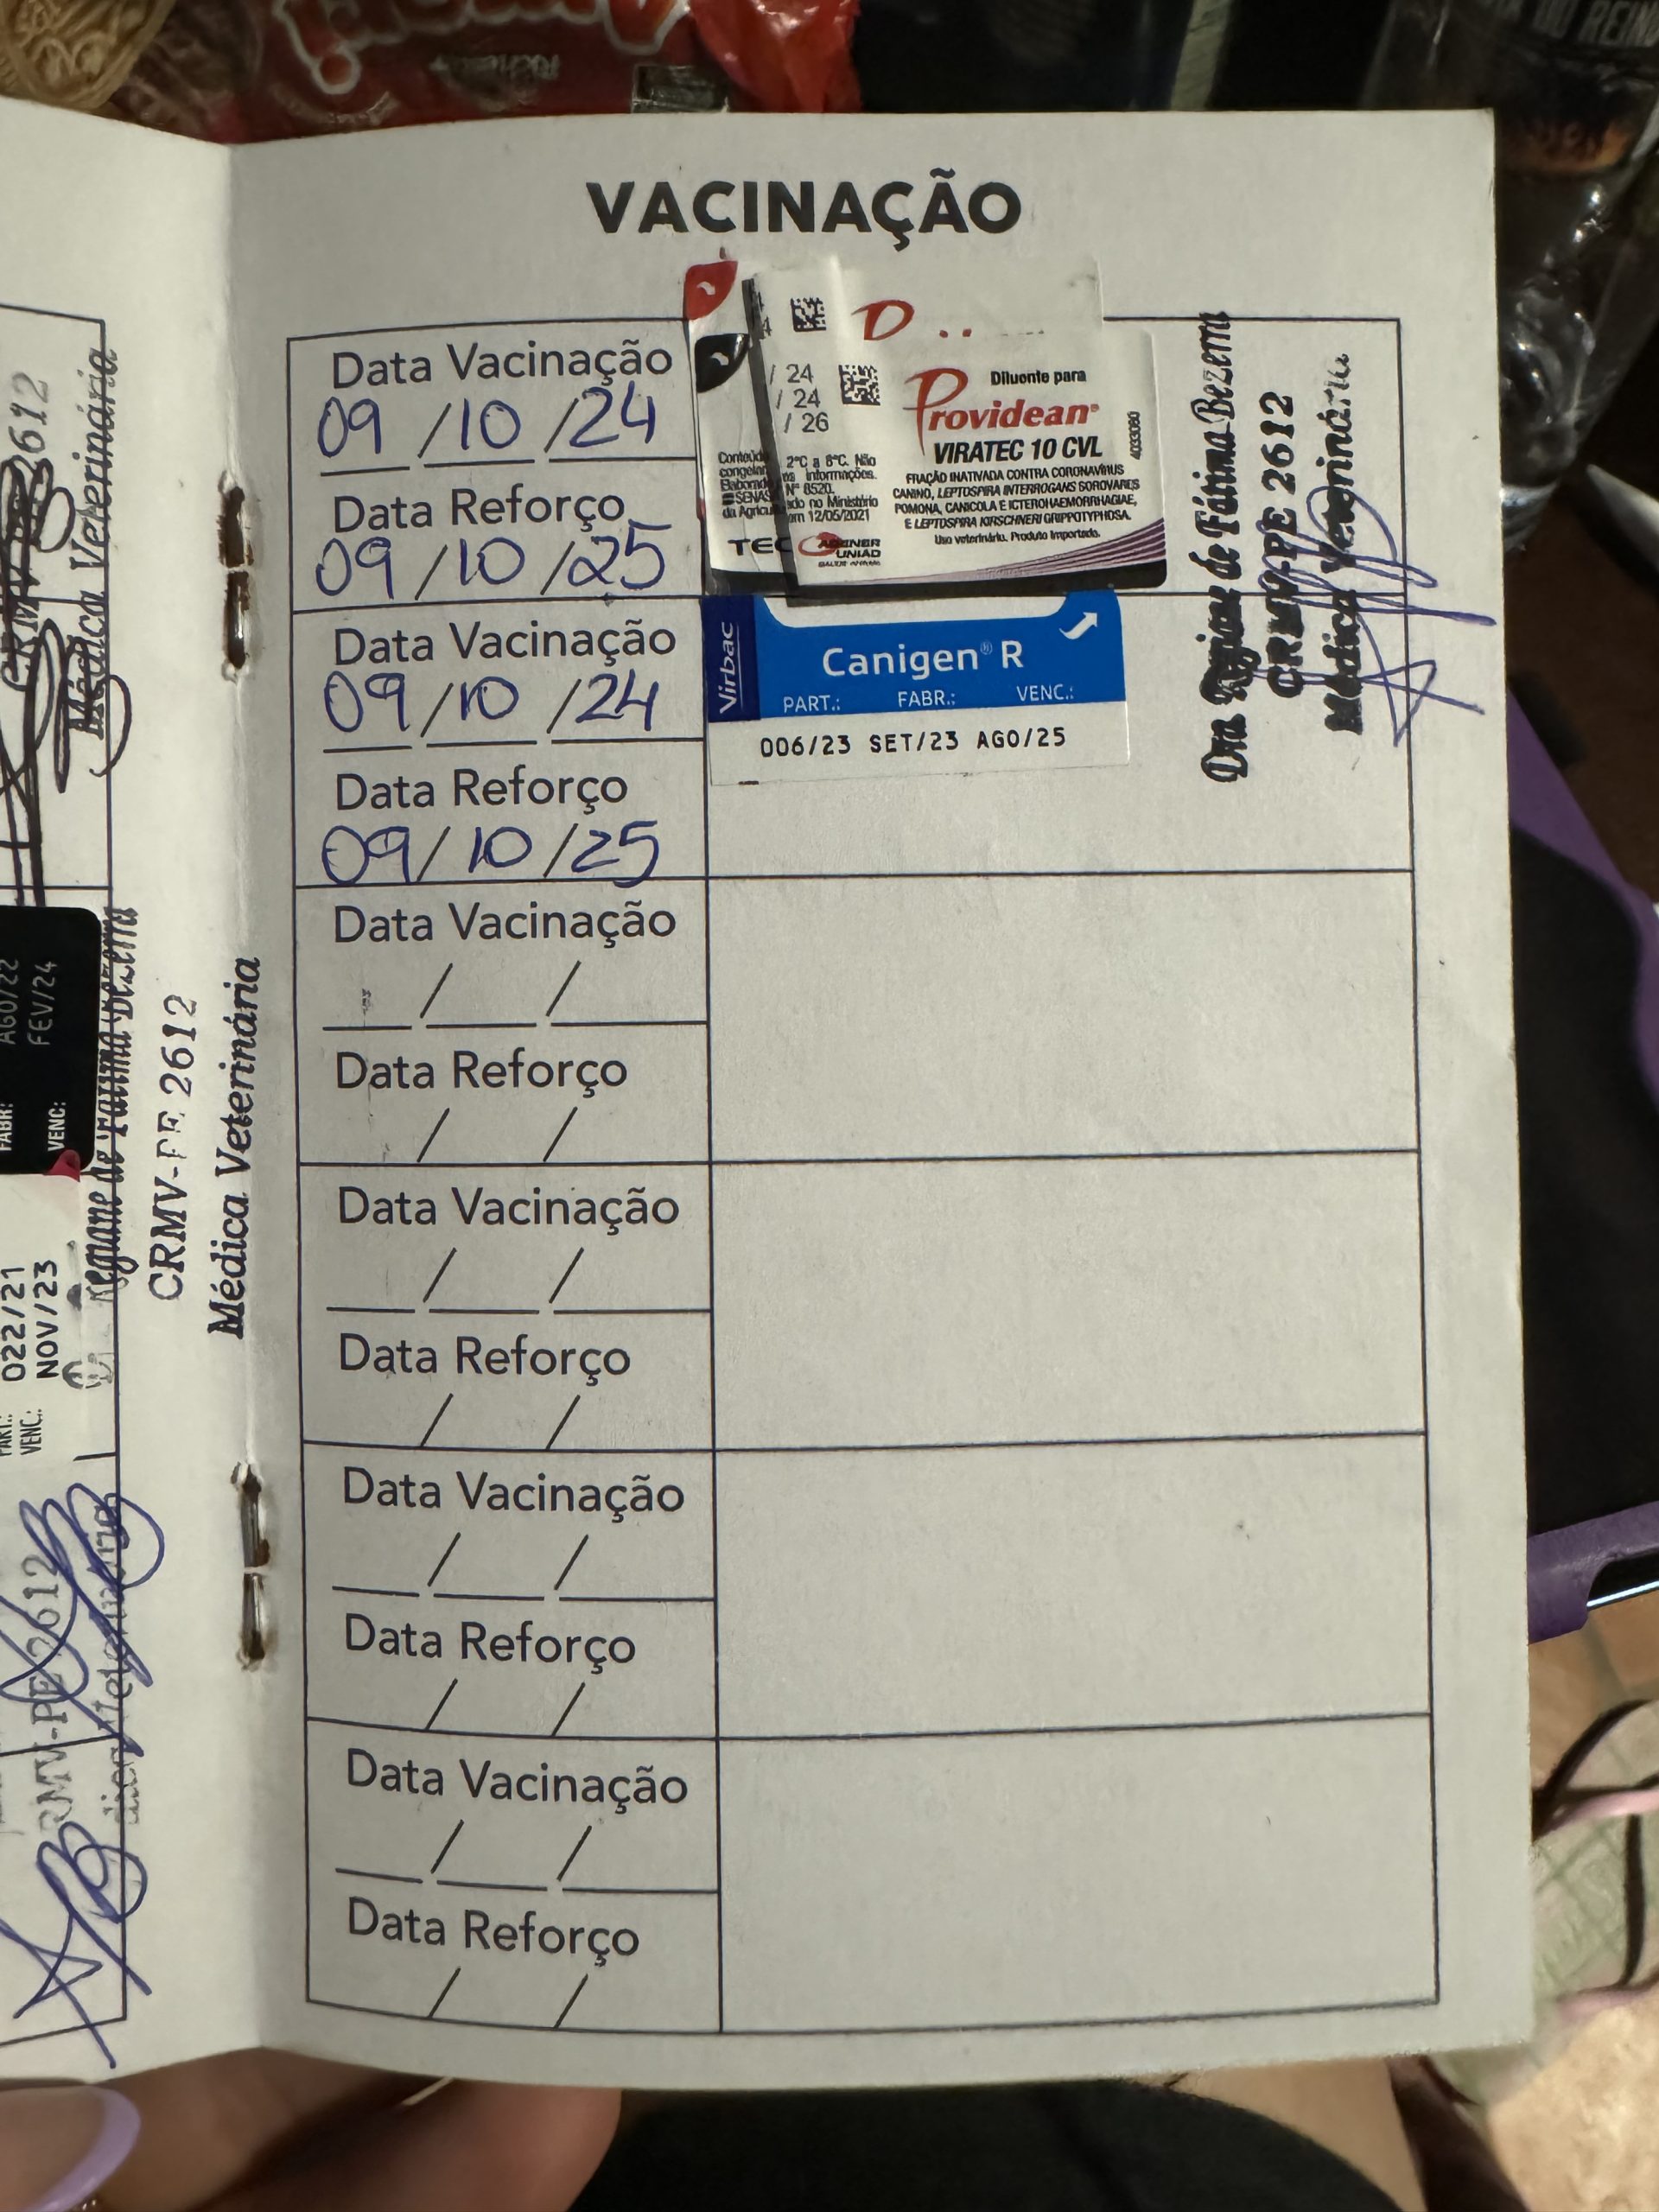 VACINAÇÃO
Data Vacinação
09/10/24
Data Reforço
09/10/25
/ 24
/ 24
/ 26
Diluente para
Providean®
VIRATEC 10 CVL
FRAÇÃO INATIVADA CONTRA CORONAVÍRUS
CANINO, LEPTOSPIRA INTERROGANS SOROVARES
POMONA, CANICOLA E ICTEROHAEMORRHAGIAE,
E LEPTOSPIRA KIRSCHNERI GRIPPOTYPHOSA.
Uso veterinário. Produto Importado.
4033080
Conteúdo
congelar
Elaborado
SENAS
da Agricu
2°C a 8°C. Não
informações.
Nº 8520.
ado no Ministério
em 12/05/2021
TEC
UNIÃO
Data Vacinação
09/10/24
Data Reforço
09/10/25
Virbac
Canigen® R
PART.: FABR.: VENC.:
006/23 SET/23 AGO/25
Dra Regiane de Fátima Bezerra
CRMV-PE 2612
Médica Veterinária
Data Vacinação
/ /
Data Reforço
/ /
Data Vacinação
/ /
Data Reforço
/ /
Data Vacinação
/ /
Data Reforço
/ /
Data Vacinação
/ /
Data Reforço
/ /
2612
Médica Veterinária
FABR: AGO/22
VENC: FEV/24
Regiane de Fátima Bezerra
CRMV-PE 2612
Médica Veterinária
PART.: 022/21
VENC.: NOV/23
RMV-PE 2612
DO REINO